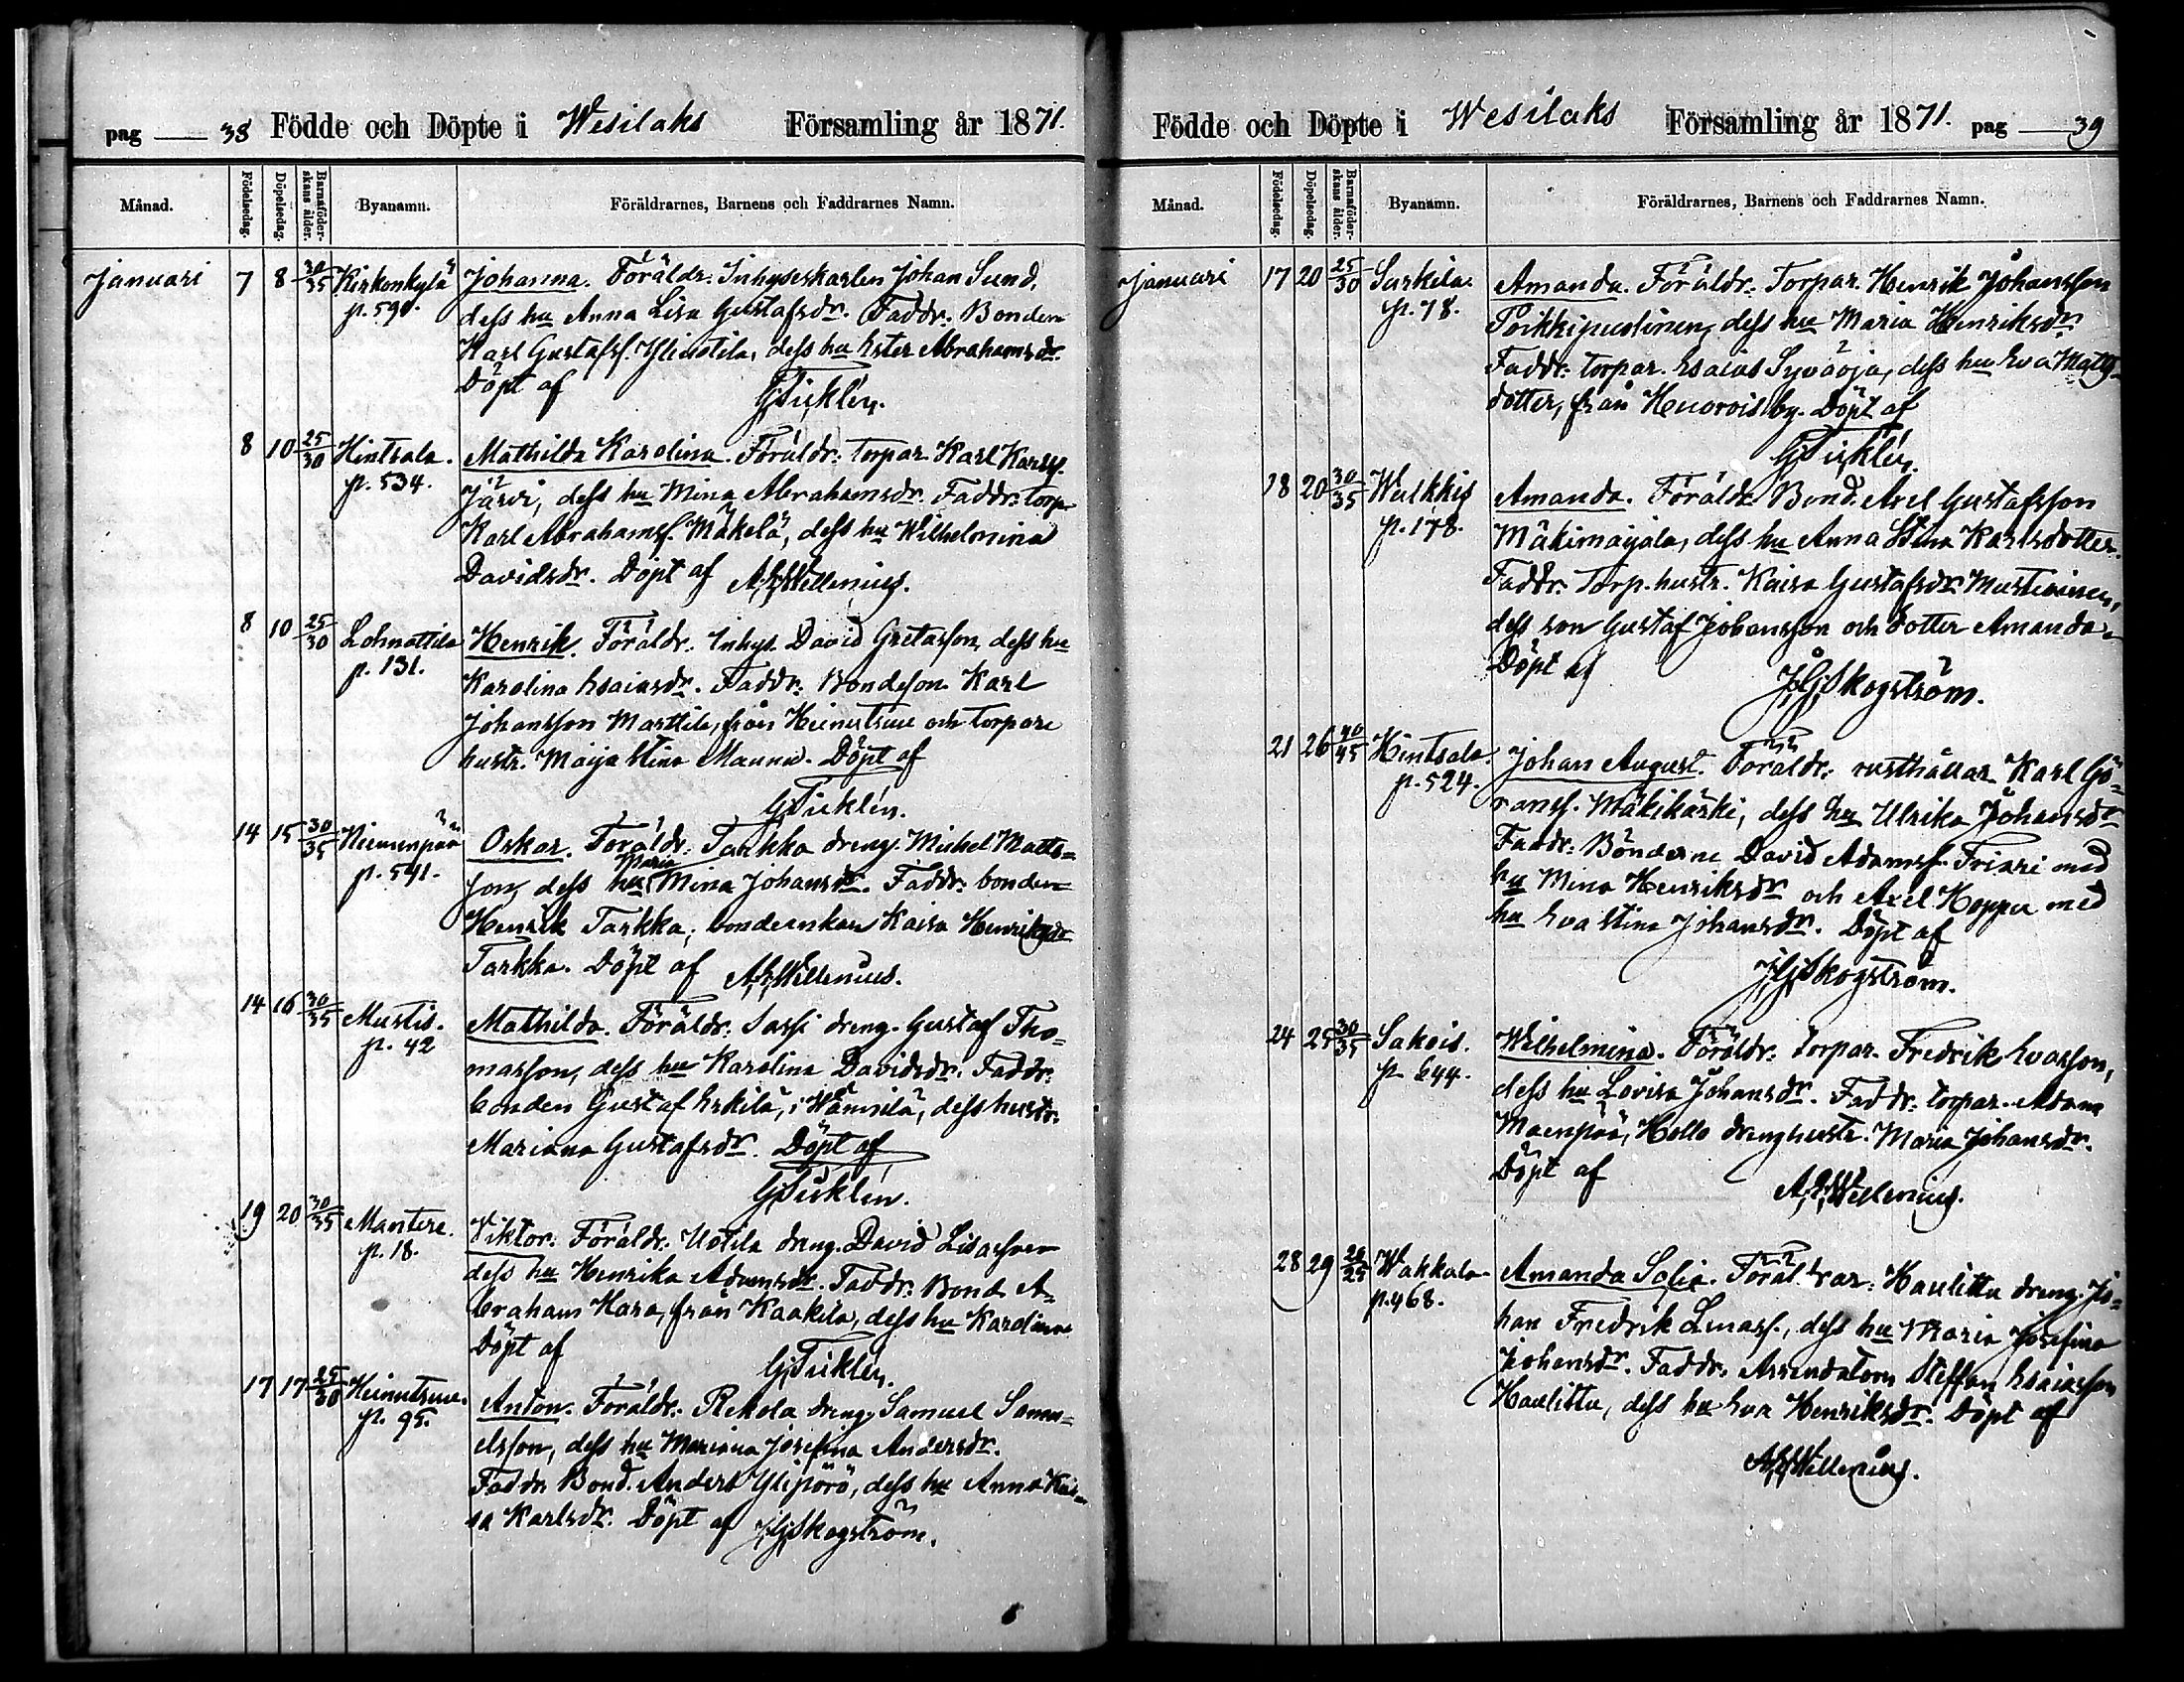 pag 38 Födde och Döpte i Wesilaks Församling år 1871.
Månad. Födelsedag. Döpelsedag. Barnaföderskans ålder. Byanamn. Föräldrarnes, Barnens och Faddrarnes Namn.
Januari 7 8 30/35 Kirkonkylä Johanna. Föräldr: Inhyseskarlen Johan Sund,
p. 590. dess hu Anna Lisa Gustafsdr. Faddr: Bonden
Karl Gustafss. Yliuotila, dess hu Ester Abrahamsdr.
Döpt af G Ticklén.
8 10 25/30 Hintsala. Mathilda Karolina. Föräldr: torpar. Karl Karlss.
p. 534. Järvi, dess hu Mina Abrahamsdr. Faddr: torp.
Karl Abrahamss. Mäkelä, dess hu Wilhelmina
Davidsdr. Döpt af A. E. Wellenius.
8 10 25/30 Lohmottila Henrik. Föräldr: Inhys. David Gretasson, dess hu
p. 131. Karolina Esaiasdr. Faddr: Bondeson Karl
Johansson Marttila, från Heinutsuu och torpare
hustr. Maija Stina Mauna. Döpt af
G Ticklén.
14 15 30/35 Niemenpää Oskar. Föräldr: Tarkka dreng. Michel Matts=
p. 541. son, dess hu Maria Mina Johansdr. Faddr: bonden
Henrik Tarkka, bondeenkan Kaisa Henriksdr
Tarkka. Döpt af A. E. Wellenius.
14 16 30/35 Mustis. Mathilda. Föräldr: Sassi dreng. Gustaf Tho=
p. 42 masson, dess hu Karolina Davidsdr. Faddr:
bonden Gustaf Erkilä, i Wännilä, dess hustr.
Mariana Gustafsdr. Döpt af
G Ticklén.
19 20 30/35 Mantere. Viktor. Föräldr: Uotila dreng. David Lisasson
p. 18. dess hu Henrika Adamsdr. Faddr: Bond. A=
braham Hara, från Kaakila, dess hu Karolina
Döpt af G Ticklén.
17 17 25/30 Heinutsuu. Anton. Föräldr: Rekola dreng. Samuel Samu=
p. 95. elsson, dess hu Mariana Josefina Andersdr.
Faddr: Bond. Anders Ylipörö, dess hu Anna Kai=
sa Karlsdr. Döpt af J G Skogström.
Födde och Döpte i Wesilaks Församling år 1871. pag 39
Månad. Födelsedag. Döpelsedag. Barnaföderskans ålder. Byanamn. Föräldrarnes, Barnens och Faddrarnes Namn.
Januari 17 20 25/30 Surkila. Amanda. Föräldr: Torpar. Henrik Johansson
p. 78. Poikkipuolinen, dess hu Maria Henriksdr.
Faddr: torpar. Esaias Syväoja, dess hu Eva Matts=
dotter, från Hevorois by. Döpt af
G Ticklén.
18 20 30/35 Wulkkis Amanda. Föräldr: Bond. Axel Gustafsson
p. 178. Mäkimaijala, dess hu Anna Stina Karlsdotter.
Faddr: Torp. hustr. Kaisa Gustafsdr. Mustionen,
dess son Gustaf Johansson och dotter Amanda.
Döpt af J G Skogström.
21 26 40/45 Hintsala. Johan August. Föräldr: rusthållar. Karl Gö=
p. 524. ranss. Mäkikäski, dess hu Ulrika Johansdr
Faddr: Bönderne David Adamss. Friari med
hu Mina Henriksdr och Axel Hoppu med
hu Eva Stina Johansdr. Döpt af
J G Skogström.
24 25 30/35 Sakois. Wilhelmina. Föräldr: torpar. Fredrik Evasson,
p. 644. dess hu Lovisa Johansdr. Faddr: torpar. Adam
Maenpää, Hollo drenghustr. Maria Johansdr.
Döpt af A. E. Wellenius.
28 29 20/25 Wakkala. Amanda Sofia. Föräldrar: Haulittu dreng. Jo=
p. 468. han Fredrik Linass., dess hu Maria Josefina
Johansdr. Faddr. Arrendatorn Steffan Esaiasson
Haulittu, dess hu Eva Henriksdr. Döpt af
A. E. Wellenius.